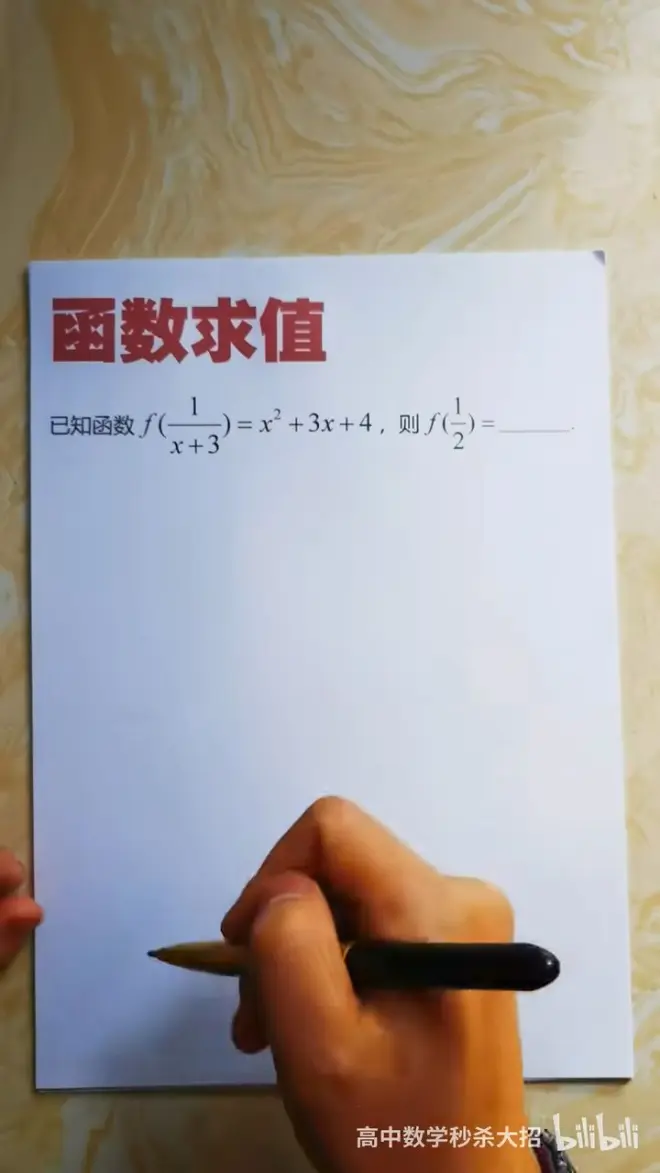 函数求值
已知函数 f(1/(x+3)) = x² + 3x + 4，则 f(1/2) = ______.
高中数学秒杀大招 bilibili